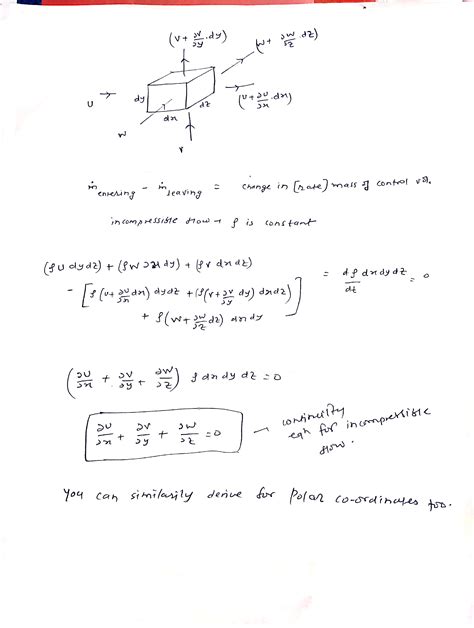 (V + ∂V/∂y .dy)
(W + ∂W/∂z .dz)
U
dy
dz
(U + ∂U/∂x .dx)
dx
W
V
ṁ entering - ṁ leaving = change in [rate] mass of control vol.
incompressible flow → ρ is constant
(ρ U dy dz) + (ρ W ∂x dy) + (ρ V dx dz)
- [ρ (U + ∂U/∂x dx) dy dz + (ρ (V + ∂V/∂y dy) dx dz) = dρ dx dy dz / dt = 0
+ ρ (W + ∂W/∂z dz) dx dy]
(∂U/∂x + ∂V/∂y + ∂W/∂z) ρ dx dy dz = 0
∂U/∂x + ∂V/∂y + ∂W/∂z = 0
continuity
eqn for incompressible
flow.
You can similarily derive for Polar co-ordinates too.